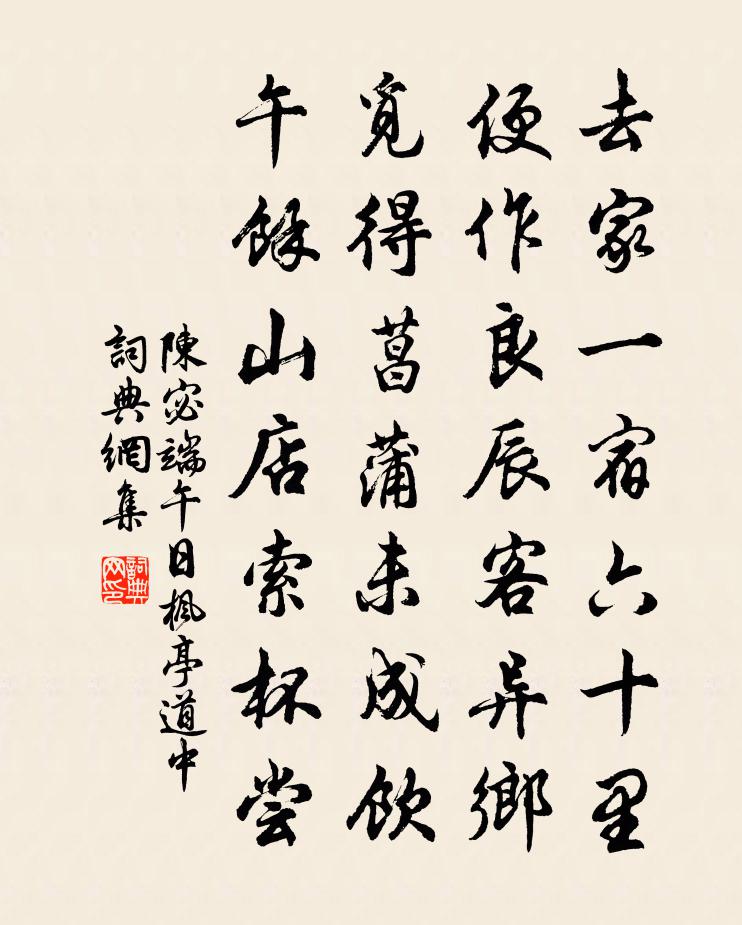 去家一宿六十里
便作良辰客异鄉
覓得菖蒲未成飲
午餘山店索杯尝
陳宓端午日楓亭道中
詞典網集
詞典網印